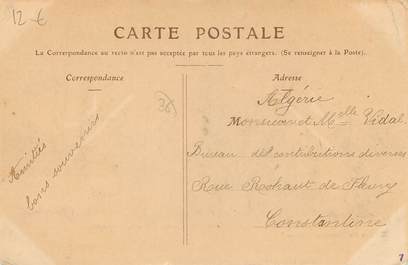 12-€
CARTE POSTALE
La Correspondance au recto n'est pas acceptée par tous les pays étrangers. (Se renseigner à la Poste).
Correspondance
Amitiés
bons souvenirs
38
Adresse
Algérie
Monsieur et Melle Vidal
Bureau des contributions diverses
Rue Rohaut de Fleury
Constantine
7